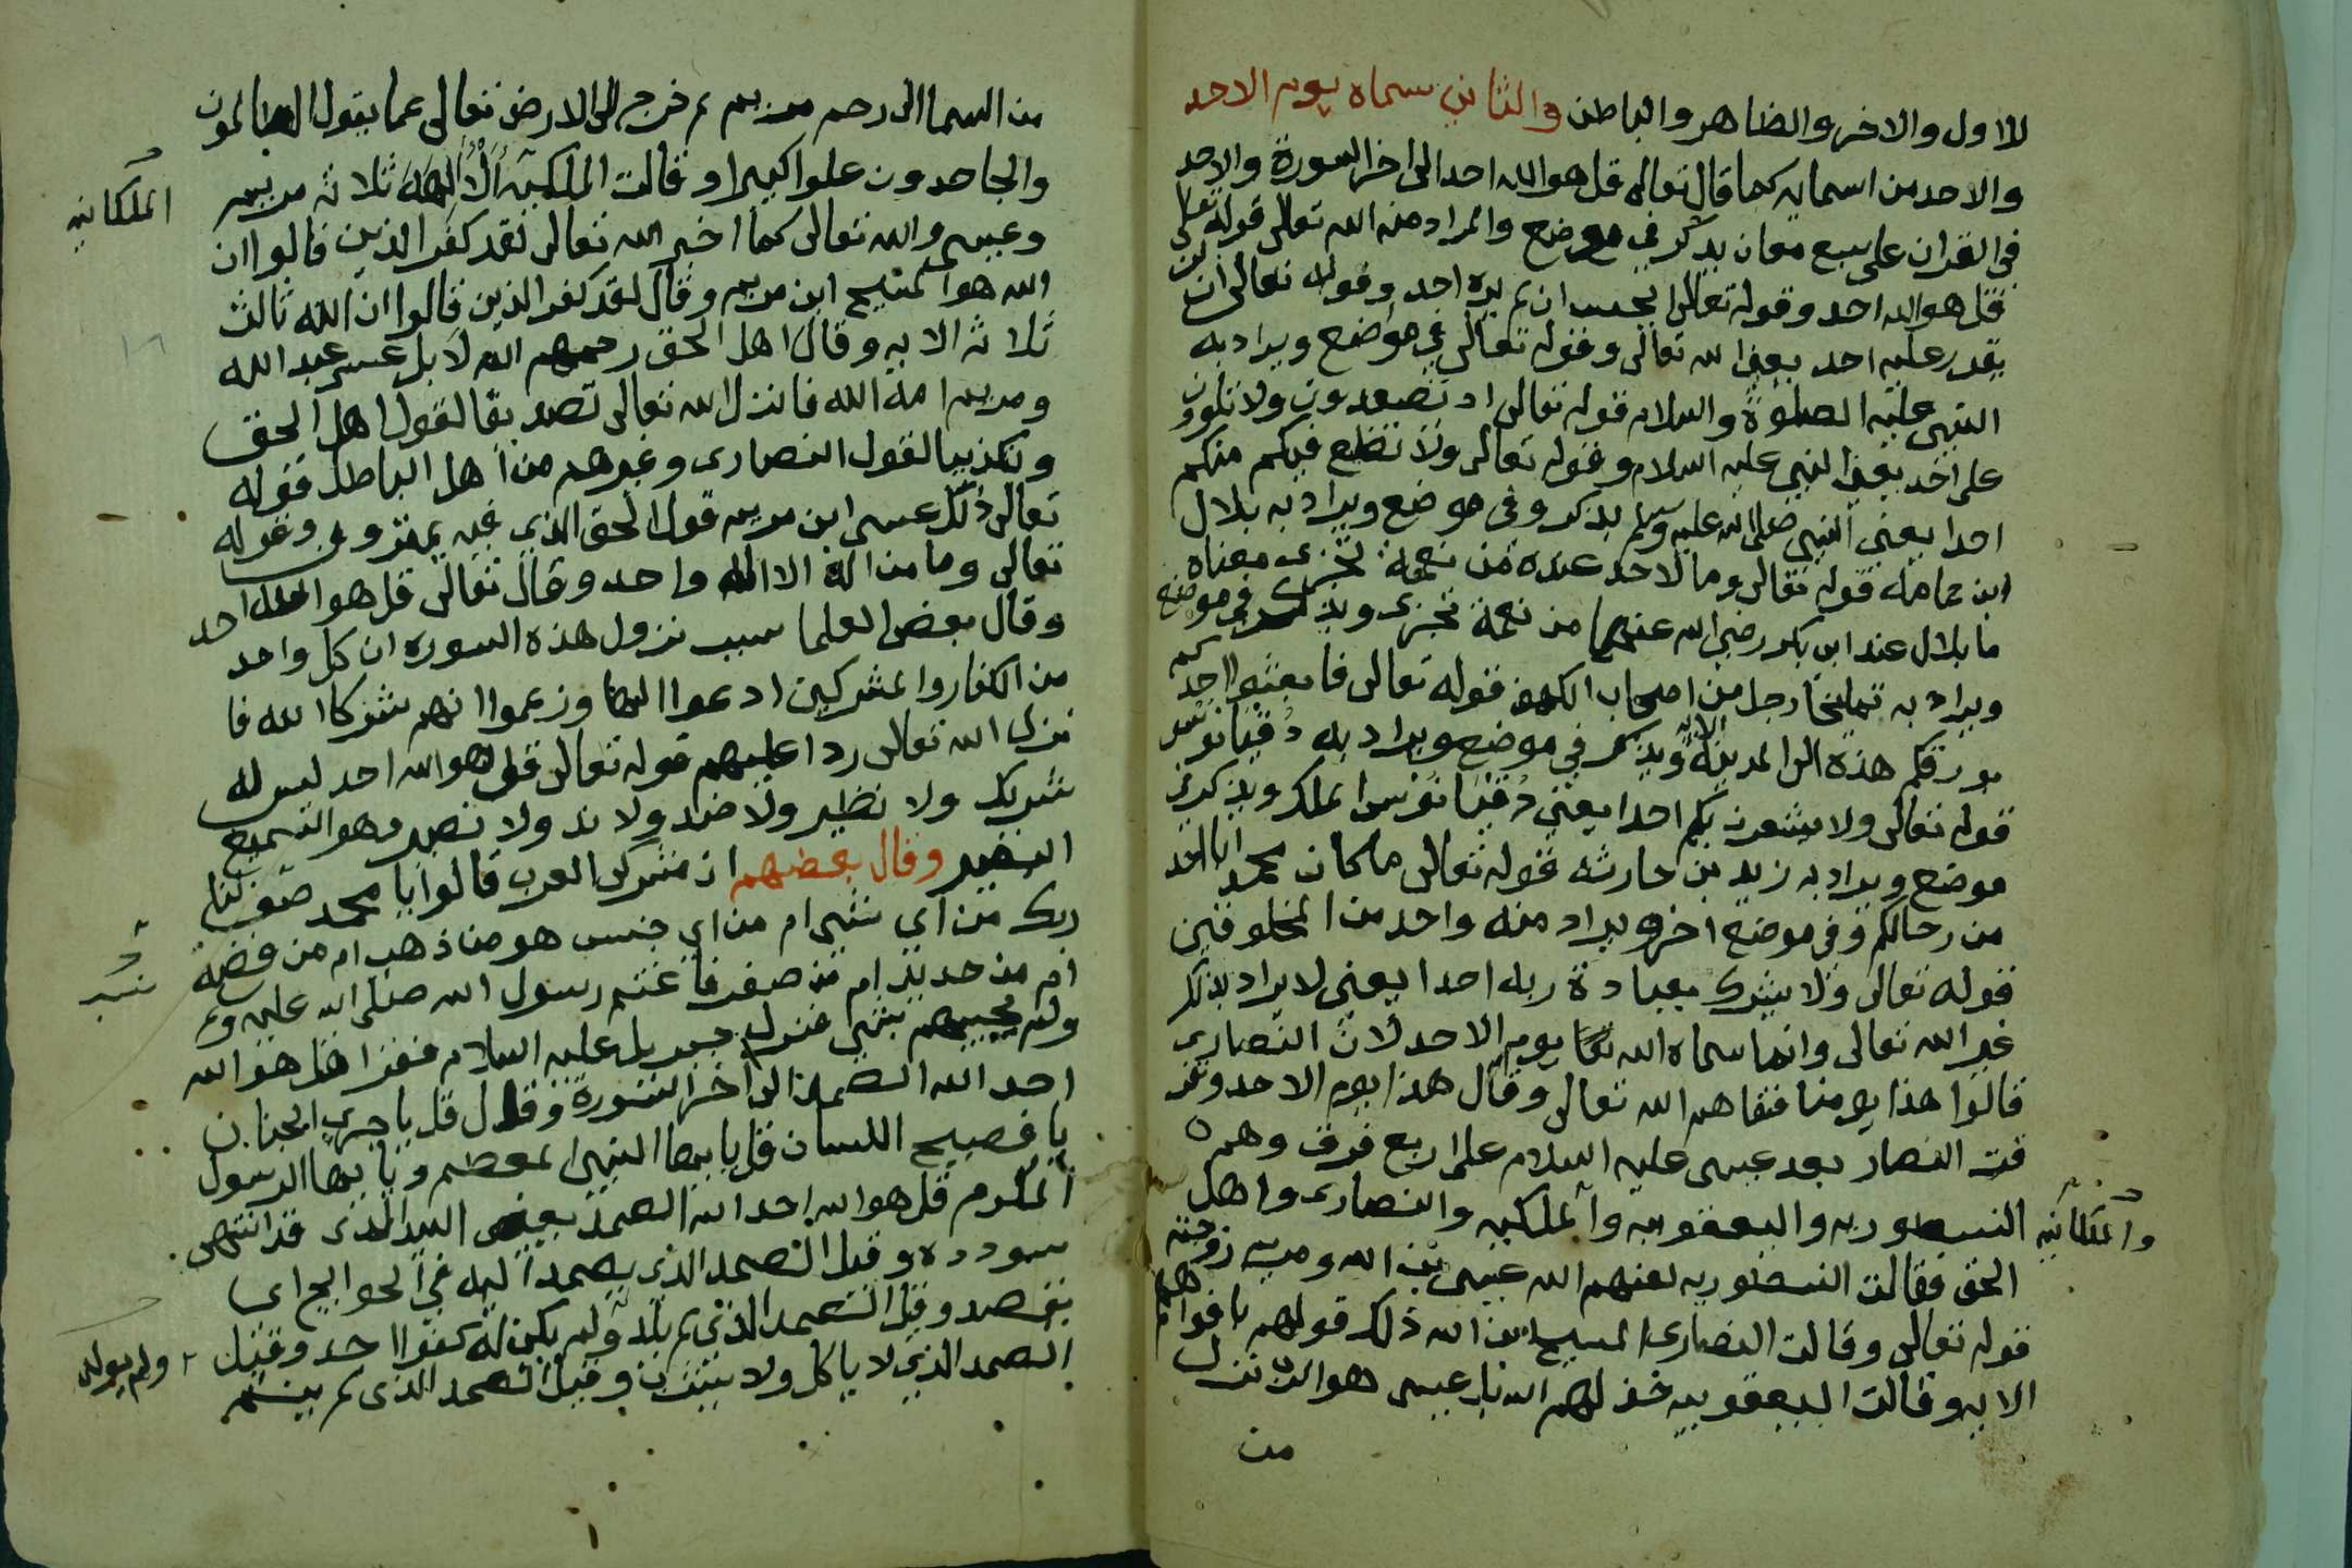 للاول والاخر والظاهر والباطن والثاني سماه يوم الاحد
والاحد من اسمايه كما قال تعالى قل هو الله احد الى اخر السورة والاحد
في القران على سبع معان يذكر في موضع والمراد منه الله تعالى قوله تعالى
قل هو الله احد وقوله تعالى ايحسب ان لم يره احد وقوله تعالى ان لن
يقدر عليه احد يعني الله تعالى وقوله تعالى في موضع ويراد به
النبي عليه الصلوة والسلام قوله تعالى اذ تصعدون ولا تلوون
على احد يعني النبي عليه السلام وقوله تعالى ولا نطيع فيكم منكم
احدا يعني النبي صلى الله عليه وسلم يذكر وفي موضع ويراد به بلال
ابن حمامه قوله تعالى وما لاحد عنده من نعمة تجزى معناه
ما بلال عند ابي بكر رضي الله عنهما من نعمة تجزى ويذكر في موضع
ويراد به تمليخا رجل من اصحاب الكهف قوله تعالى فابعثوا احدكم
بورقكم هذه الى المدينة الاية ويذكر في موضع ويراد به دقيانوس
قوله تعالى ولا يشعرن بكم احدا يعني دقيانوس الملك ويذكر في
موضع ويراد به زيد بن حارثه قوله تعالى ما كان محمد ابا احد
من رجالكم وفي موضع اخر ويراد منه واحد من المخلوقين
قوله تعالى ولا يشرك بعبادة ربه احدا يعني لا يراد بذلك
غير الله تعالى وانما سماه الله تعا يوم الاحد لان النصارى
قالوا هذا يومنا فنفاهم الله تعالى وقال هذا يوم الاحد وتفر
قت النصار بعد عيسى عليه السلام على اربع فرق وهم
النسطوريه واليعقوبيه والملكيه والنصارى واهل
والملكانيه
الحق فقالت النسطوريه لعنهم الله عيسى بن الله ومريم زوجته
قوله تعالى وقالت النصارى المسيح بن الله ذلك قولهم بافواههم
الايه وقالت اليعقوبيه خذلهم الله بل عيسى هو الله نزل
من
من السما الى رحم مريم ثم خرج الى الارض تعالى عما يقول الظالمون
والجاحدون علوا كبيرا وقالت الملكيه الالهة ثلاثه مريم
الملكانيه
وعيسى والله تعالى كما اخبر الله تعالى لقد كفر الذين قالوا ان
الله هو المسيح ابن مريم وقال لقد كفر الذين قالوا ان الله ثالث
ثلاثه الايه وقال اهل الحق رحمهم الله لا بل عيسى عبد الله
ومريم امة الله فانزل الله تعالى تصديقا لقول اهل الحق
وتكذيبا لقول النصارى وغيرهم من اهل الباطل قوله
تعالى ذلك عيسى ابن مريم قول الحق الذي فيه يمترون وقوله
تعالى وما من اله الا الله واحد وقال تعالى قل هو الله احد
وقال بعض العلما سبب نزول هذه السوره ان كل واحد
من الكفار والمشركين ادعوا الها وزعموا انهم شركا الله فا
نزل الله تعالى ردا عليهم قوله تعالى قل هو الله احد ليس له
شريك ولا نظير ولا ضد ولا ند ولا نصير وهو السميع
البصير وقال بعضهم ان مشركى العرب قالوا يا محمد صف لنا
ربك من اي شي ام من اي جنس هو من ذهب ام من فضة
ام من حديد ام من صفر فاغتم رسول الله صلى الله عليه وسلم
ولم يجيبهم بشي فنزل جبريل عليه السلام فقرا قل هو الله
احد الله الصمد الى اخر السورة وقال قل يا جري الجنان
يا فصيح اللسان قل يا ايها النبي المعظم ويا ايها الرسول
المكرم قل هو الله احد الله الصمد يعني السيد الذى قد انتهى
سودده وقيل الصمد الذي يصمد اليه في الحوايج اي
يقصد وقيل الصمد الذي لم يلد ولم يكن له كفوا احد وقيل
ولم يولد
الصمد الذي لا ياكل ولا يشرب وقيل الصمد الذى لم ينم